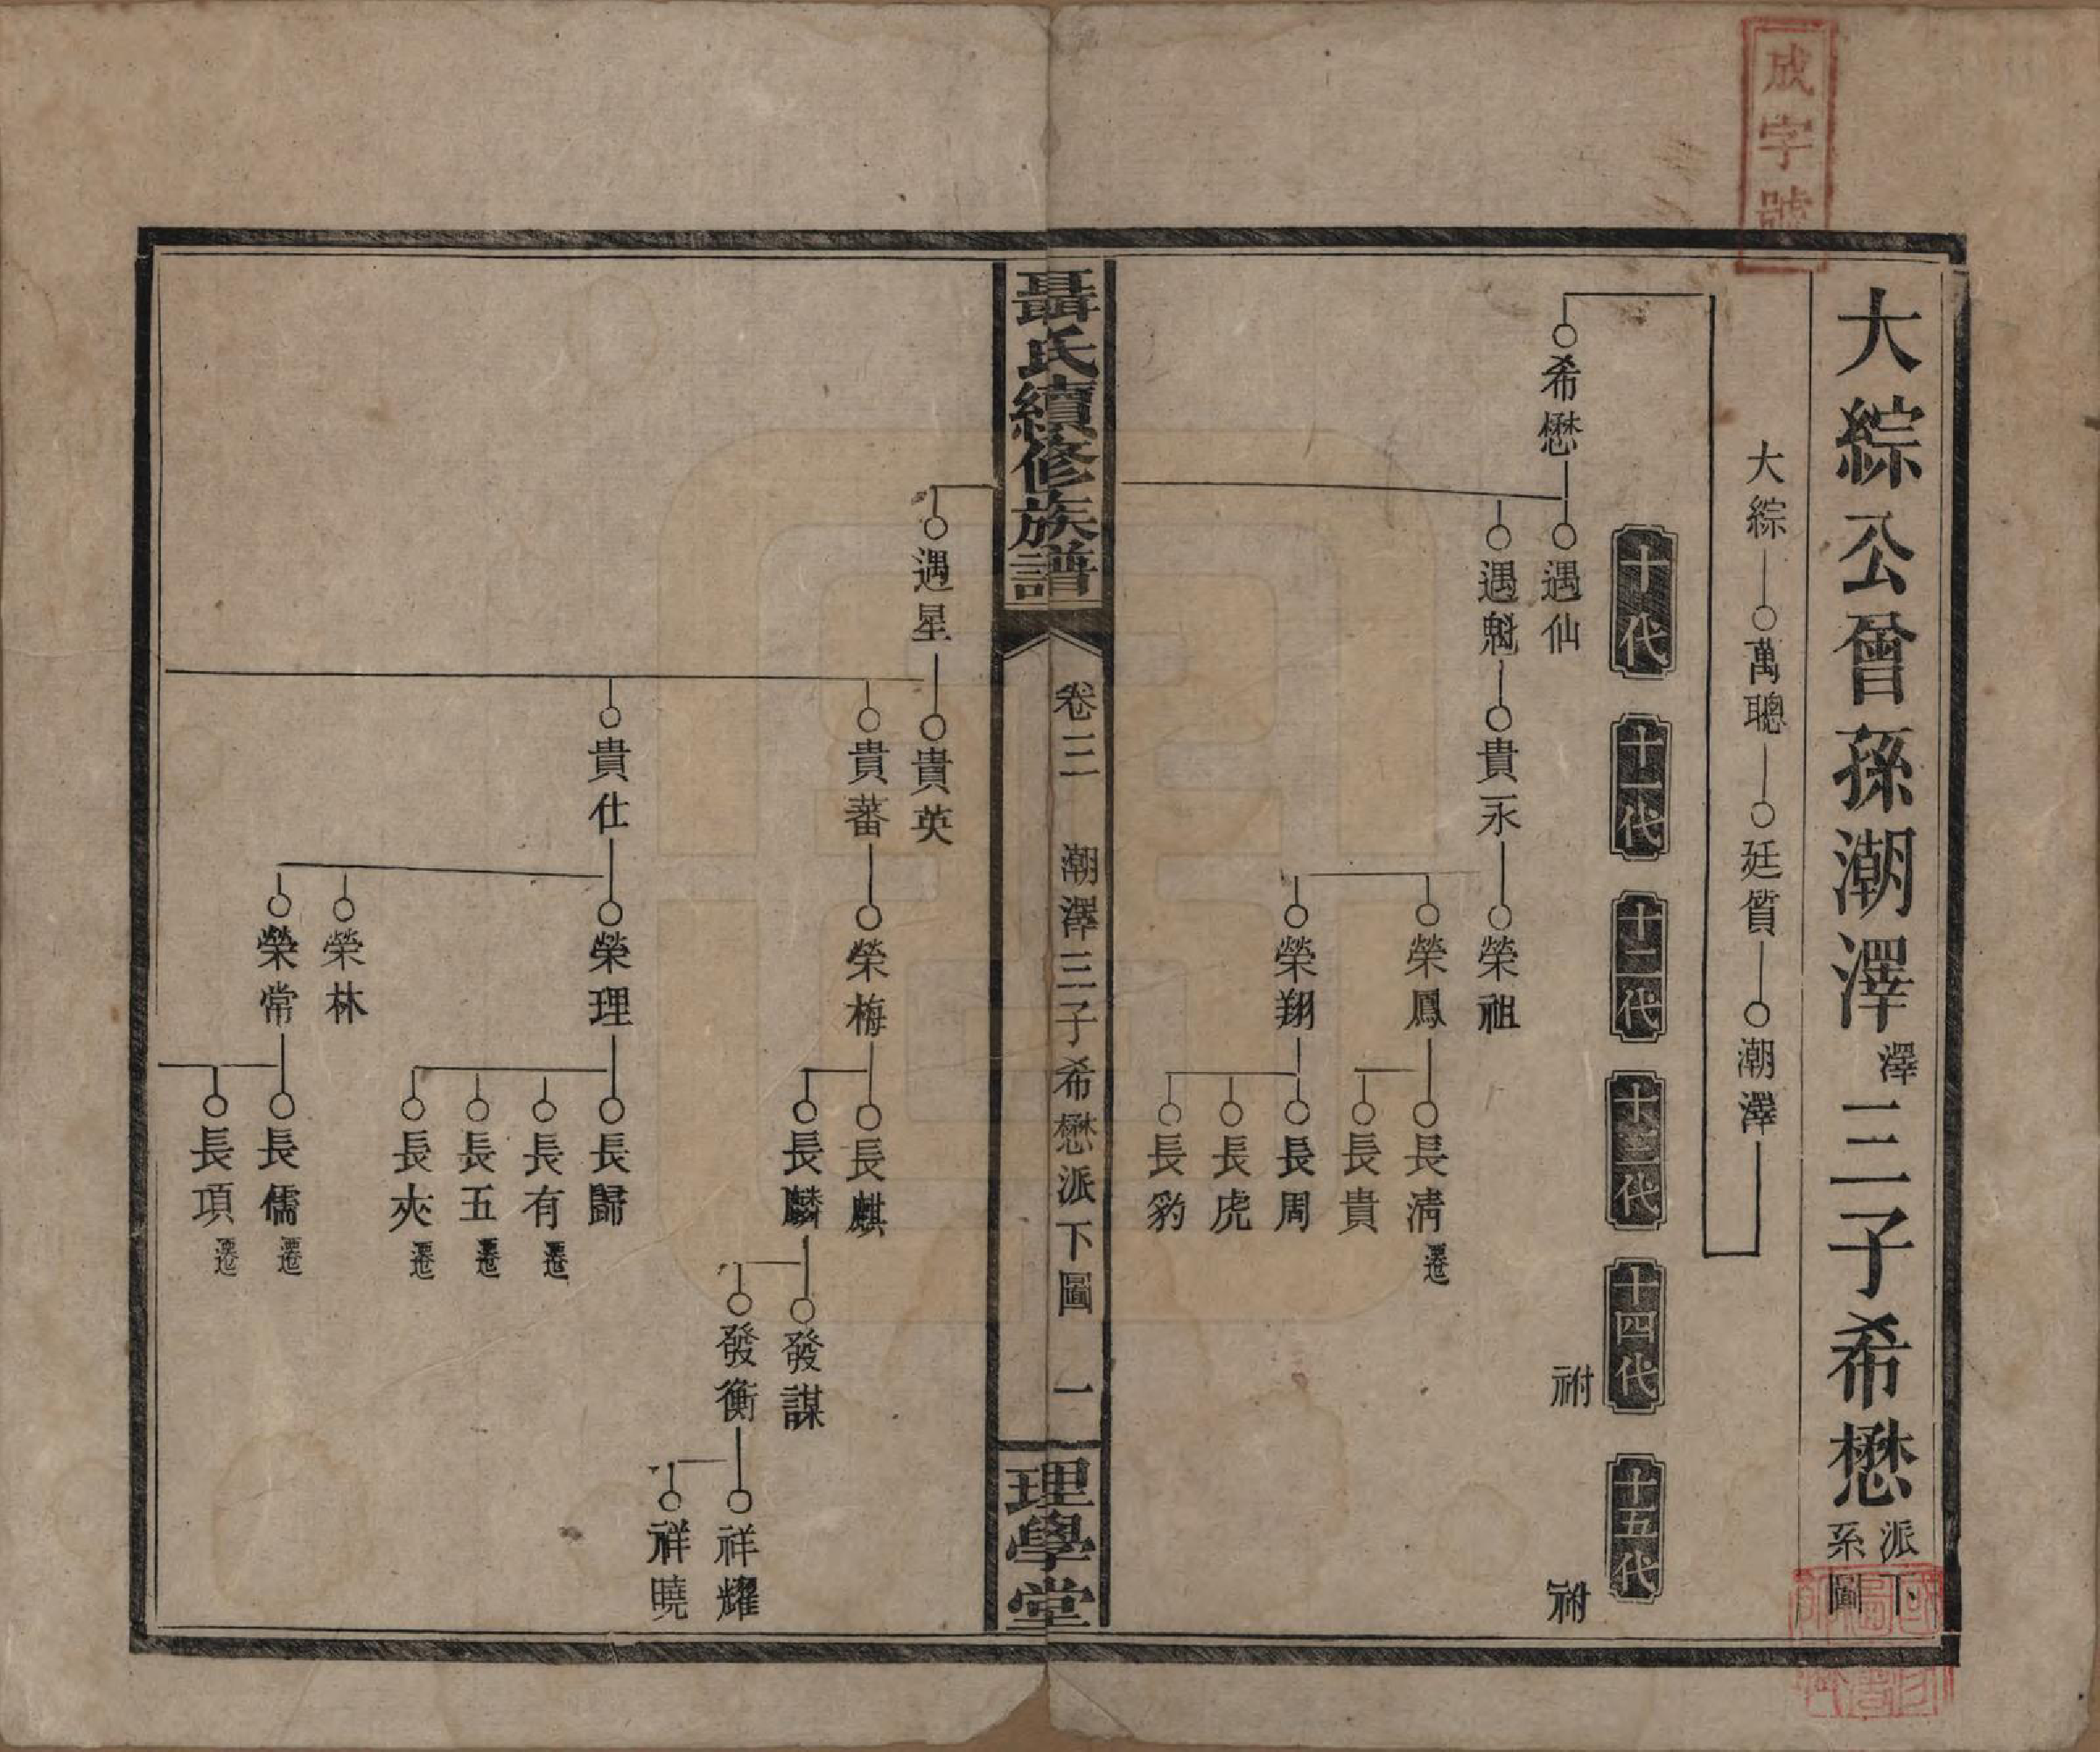 成字號
大綜公曾孫潮澤澤三子希懋派下系圖
大綜 萬聰 廷質 潮澤
十代
十一代
十二代
十三代
十四代
十五代
希懋 遇仙
祔
祔
遇魁 貴永 榮祖
榮鳳 長清 遷
長貴
榮翔 長周
長虎
長豹
聶氏續修族譜
卷三 潮澤三子希懋派下圖 一
理學堂
遇星 貴英
貴蕃 榮梅 長麒
長麟 發謀
發衡 祥耀
祥曉
貴仕 榮理 長歸
長有 遷
長五 遷
長夾 遷
榮林
榮常 長儒 遷
長項 遷